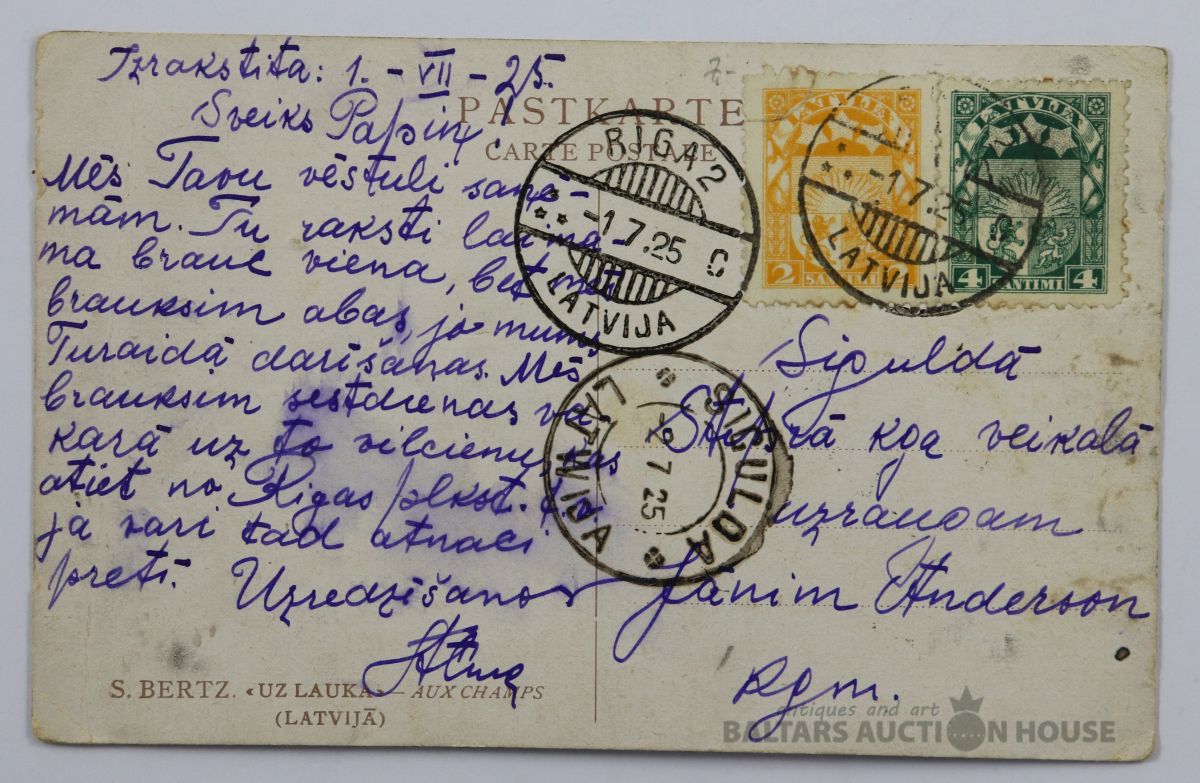 Izrakstīta: 1. - VII - 25.
Sveiks Papiņ!
PASTKARTE
CARTE POSTALE
Mēs Tavu vēstuli saņē-
mām. Tu raksti lai mā-
ma brauc viena, bet mēs
brauksim abas, jo mums
Turaidā darīšanas. Mēs
brauksim sestdienas va-
karā uz to vilcienu, kas
atiet no Rīgas plkst.
ja vari tad atnāci
pretī. Uzredzīšanos
S. BERTZ. «UZ LAUKA» — AUX CHAMPS
(LATVIJĀ)
RIGA 2
-1.7.25 C
LATVIJA
LATVIJA
2 SANTIMI 2
LATVIJA
4 SANTIMI 4
-1.7.25 C
LATVIJA
SIGULDA
-2 7 25
LATWIJA
Siguldā
kga veikalā
uzraugam
Jānim Anderson
Kgm.
antiques and art
BALTARS AUCTION HOUSE